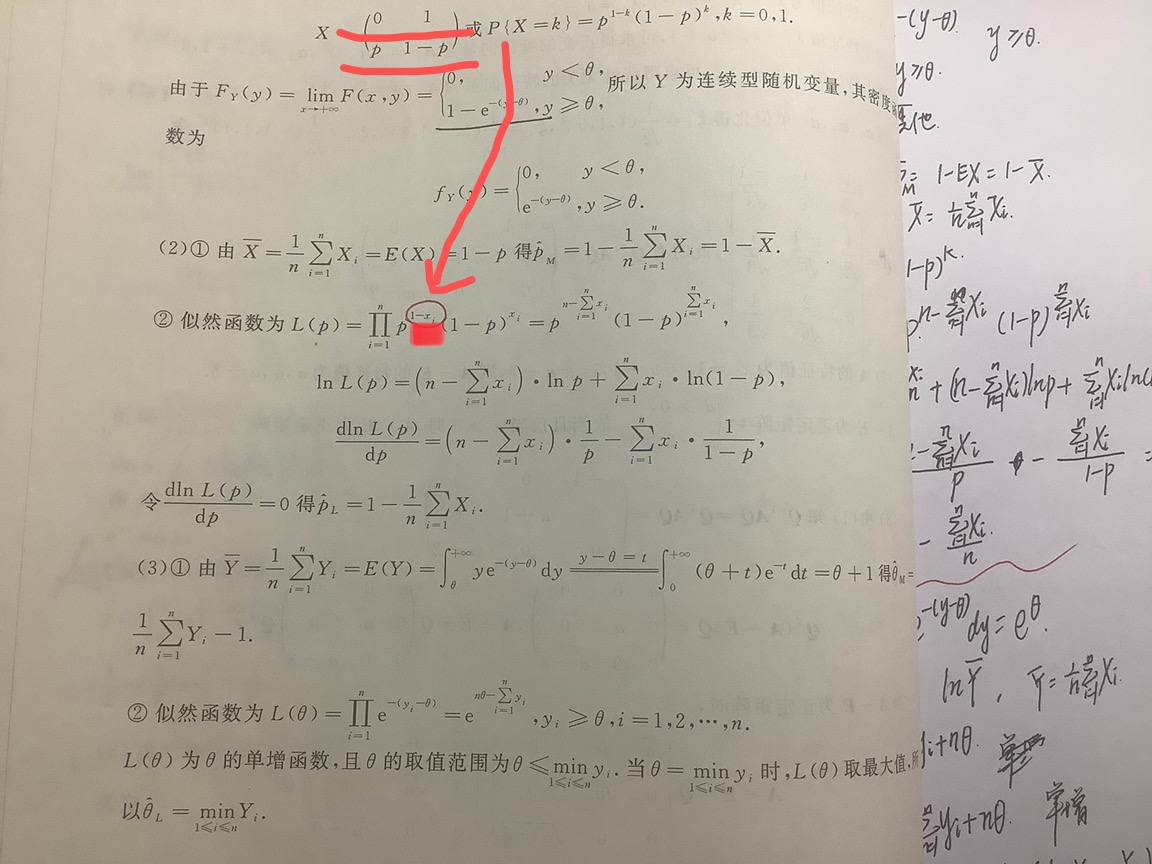 X ~ (0 1 / p 1-p) 或 P{X=k}=p^{1-k}(1-p)^k, k=0,1.
由于 F_Y(y)=lim_{x→+∞} F(x,y)={0, y<θ, 1-e^{-(y-θ)}, y≥θ, 所以 Y 为连续型随机变量,其密度
数为
f_Y(y)={0, y<θ, e^{-(y-θ)}, y≥θ.
(2)① 由 X̄=1/n ∑_{i=1}^n X_i=E(X)=1-p 得 p̂_M=1-1/n ∑_{i=1}^n X_i=1-X̄.
② 似然函数为 L(p)=∏_{i=1}^n p^{1-x_i}(1-p)^{x_i}=p^{n-∑_{i=1}^n x_i}(1-p)^{∑_{i=1}^n x_i},
ln L(p)=(n-∑_{i=1}^n x_i)·ln p+∑_{i=1}^n x_i·ln(1-p),
dln L(p)/dp=(n-∑_{i=1}^n x_i)·1/p-∑_{i=1}^n x_i·1/(1-p),
令 dln L(p)/dp=0 得 p̂_L=1-1/n ∑_{i=1}^n X_i.
(3)① 由 Ȳ=1/n ∑_{i=1}^n Y_i=E(Y)=∫_θ^{+∞} ye^{-(y-θ)}dy =(y-θ=t)= ∫_0^{+∞} (θ+t)e^{-t}dt=θ+1 得 θ̂_M=
1/n ∑_{i=1}^n Y_i-1.
② 似然函数为 L(θ)=∏_{i=1}^n e^{-(y_i-θ)}=e^{nθ-∑_{i=1}^n y_i}, y_i≥θ, i=1,2,…,n.
L(θ) 为 θ 的单增函数,且 θ 的取值范围为 θ≤min_{1≤i≤n} y_i. 当 θ=min_{1≤i≤n} y_i 时,L(θ) 取最大值,所
以 θ̂_L=min_{1≤i≤n} Y_i.
-(y-θ) y≥θ.
y≥θ.
其他.
p̂_M= 1-EX=1-X̄.
X̄=1/n ∑_{i=1}^n X_i.
1-p)^k.
p^{n-∑_{i=1}^n X_i} (1-p)^{∑_{i=1}^n X_i}
+(n-∑_{i=1}^n X_i)lnp+∑_{i=1}^n X_i ln(
-∑_{i=1}^n X_i / p - ∑_{i=1}^n X_i / 1-p =
- ∑_{i=1}^n X_i / n
e^{-(y-θ)}dy=e^θ.
lnȲ, Ȳ=1/n ∑_{i=1}^n X_i.
y_i+nθ.
∑_{i=1}^n y_i+nθ. 单增